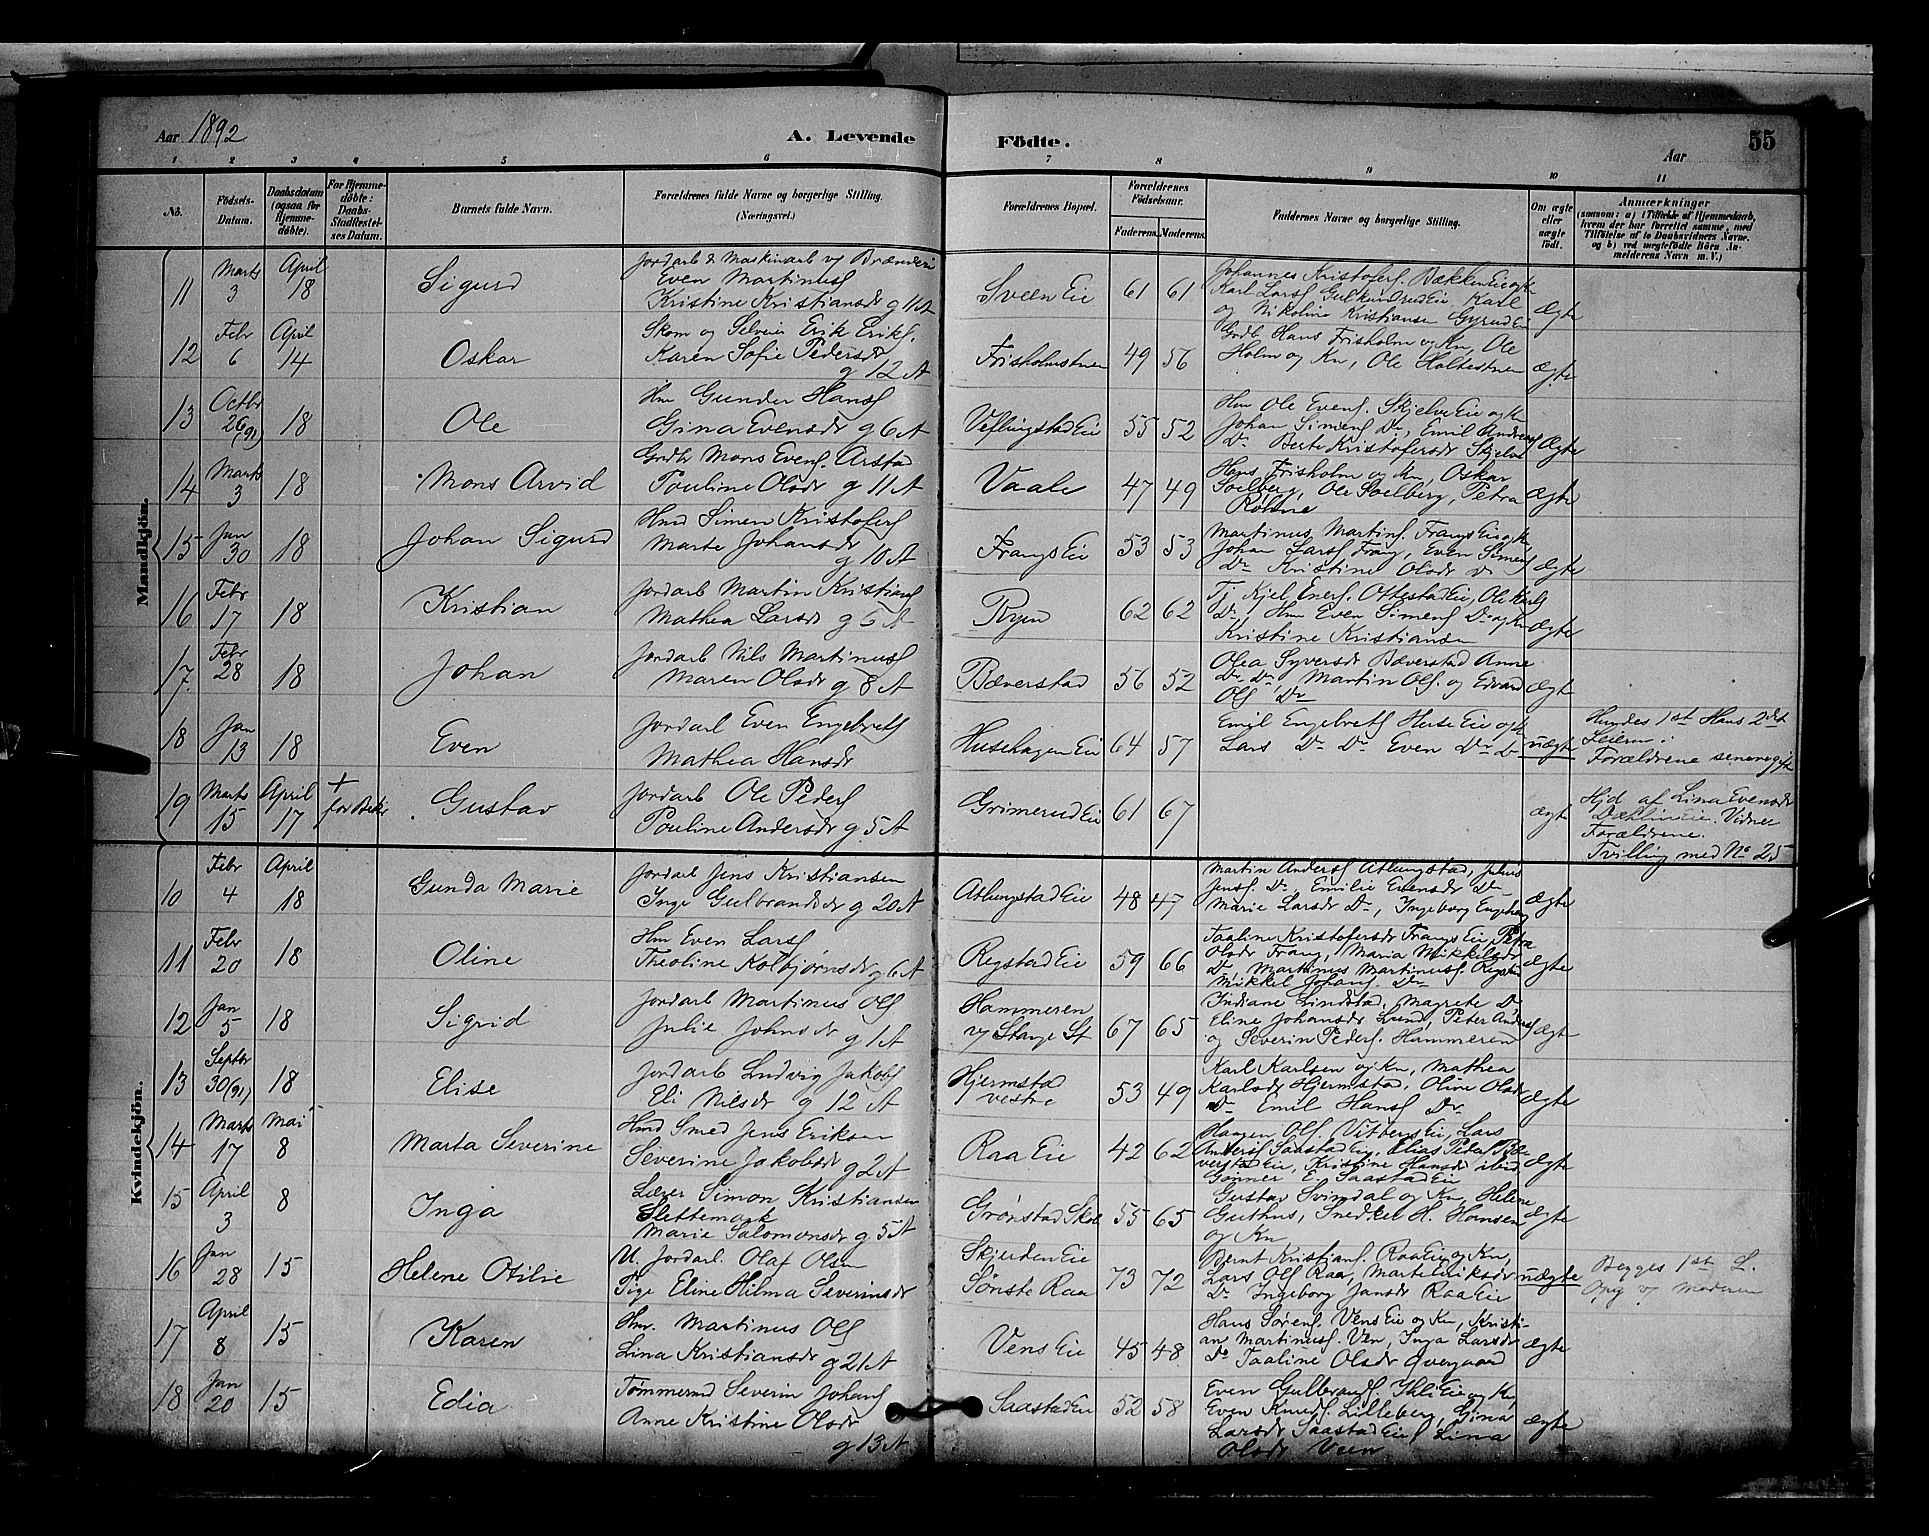 Aar 1892
A. Levende
Födte.
Aar
55
1 2 3 4 5 6 7 8 9 10 11
No.
Födsels-
Datum.
Daabsdatum
(ogsaa for
Hjemme-
døbte).
For Hjemme-
döbte:
Daabs-
Stadfæstel-
ses Datum.
Barnets fulde Navn.
Forældrenes fulde Navne og borgerlige Stilling.
(Næringsvei.)
Forældrenes Bopæl.
Forældrenes
Födselsaar.
Faderens. Moderens.
Faddernes Navne og borgerlige Stilling.
Om ægte
eller
uægte
født.
Anmærkninger
(saasom: a) i Tilfælde af Hjemmedaab,
hvem der har forrettet samme, med
Tilföielse af to Daabsvidners Navne.
og b) ved uægtefödte Börn An-
melderens Navn m. V.)
Mandkjön.
11 Marts 3 April 18 Sigurd
Jordarb & Maskinarb v/ Brænderi
Even Martinusf
Kristine Kristiansdr g 11 A
Sveen Eie 61 61
Johannes Kristofersf. Bækken Eie
Karl Larsf Gulkindrud Eie, Karl
og Nikoline Kristiansen Gyrud Eie
ægte
12 Febr 6 April 14 Oskar
Skom og Selveier Erik Eriks.
Karen Sofie Pedersdr
g 12 A
Frisholmstuen 49 56
Grdb Hans Frisholm og Kn, Ole
Holm og Kn, Ole Holtestuen
ægte
13 Octbr 26 (91) 18 Ole
Hm Gunder Hansf
Gina Evensdr g 6 A
Veflingstad Eie 55 52
Hm Ole Evens. Skjelve Eie og Kn
Johan Simensf Do, Emil Andreas
Do Berte Kristofersdr Skjelve
ægte
14 Marts 3 18 Mons Arvid
Grdbr Mons Evens. Arstad
Pouline Olsdr g 11 A
Vaale 47 49
Hans Frisholm og Kn, Oskar
Soelberg, Ole Soelberg, Petra
Rohne
ægte
15 Jan 30 18 Johan Sigurd
Hmd Simen Kristofersf
Marte Johansdr
g 10 A
Frangs Eie 53 53
Martinus Martins. Frangs Eie og Kn
Johan Larsf Frang, Even Simensf
Do Kristine Olsdr Do
ægte
16 Febr 17 18 Kristian
Jordarb Martin Kristiansf
Mathea Larsdr g 5 A
Ryen 62 62
Tj. Kjel Eners. Ottestad Eie, Ole Karlsf
Do, Hm Even Simensf Do og Kn
Kristine Kristiansen
ægte
17 Febr 28 18 Johan
Jordarb Nils Martinusf
Maren Olsdr g 8 A
Bæverstad 56 52
Olea Syversdr Bæverstad Anne
Do Do, Martin Ols. og Edvard
Olsf Do
ægte
18 Jan 13 18 Even
Jordarb Even Engebretsf
Mathea Hansdr
Husehagen Eie 64 57
Emil Engebretsf Huse Eie og Kn
Lars Do Do Even Do Do
uægte
Hendes 1st Hans 2det
Leierm:
Forældrene senere gift
19 Marts 15 April 17 +
Gustav
Jordarb Ole Pedersf
Pouline Andersdr g 5 A
Grimerud Eie 61 67
ægte
Hjd af Lina Evensdr
Dætlin Eie. Vidner
Forældrene.
Tvilling med No 25
Kvindekjön.
10 Febr 4 April 18 Gunda Marie
Jordarb Jens Kristiansen
Inge Gulbrandsdr g 20 A
Atlungstad Eie 48 47
Martin Andersf Atlungstad, Julius
Jensf. Do, Emilie Evensdr Do
Marie Larsdr Do, Ingeborg Engehaug
ægte
11 Febr 20 18 Oline
Hm Even Larsf
Theoline Kolbjørnsdr g 6 A
Rogstad Eie 59 66
Taaline Kristofersdr Frangs Eie, Petra
Olsdr Frang, Maria Mikkelsdr
Do, Martinus Martinusf. Rogstad
Mikkel Johans. Do
ægte
12 Jan 5 18 Sigrid
Jordarb Martinus Olsf
Julie Johnsdr
g 1 A
Hammeren
v/ Stange St 67 65
Indiane Lindstad, Magrete Do
Eline Johansdr Lund, Peter Andersf
og Severin Peders. Hammeren
ægte
13 Septbr 30 (91) 18 Elise
Jordarb Ludvig Jakobsf
Eli Nilsdr g 12 A
Hjermstad
vestre 53 49
Karl Karlsen og Kn, Mathea
Karlsdr Hjermstad, Oline Olsdr
Do Emil Hansf Do
ægte
14 Marts 17 Mai 8 Marta Severine
Hmd Smed Jens Eriksen
Severine Jakobsdr
g 2 A
Raa Eie 42 62
Hagen Olsf. Vitberg Eie, Lars
Andersf Saastad Eie, Elias Pedersf Bæ
verstad Eie, Kristine Hansdr ibid
Gunner E. Saastad Eie
ægte
15 April 3 8 Inga
Lærer Simon Kristiansen
Slettemark
Marie Salomonsdr g 5 A
Grønstad Skole 55 65
Gustav Svindal og Kn, Helene
Guthus, Snedker H. Hansen
og Kn
ægte
16 Jan 28 15 Helene Otilie
U. Jordarb. Olaf Olsen
Pige Eline Hilma Severinsdr
Skjerden Eie
Sønste Raa 73 72
Bernt Kristiansf. Raa Eie og Kn,
Lars Olsf Raa, Marte Eriksdr
Do Ingeborg Jansdr Raa Eie
uægte
Begges 1st L.
Opg v/ Moderen
17 April 8 15 Karen
Hm. Martinus Olsf
Lina Kristiansdr g 21 A
Vens Eie 45 48
Hans Sørens. Vens Eie og Kn, Kristi-
an Martinusf. Ven, Inga Larsdr
Do Taaline Olsdr Overgaard
ægte
18 Jan 20 15 Edia
Tømmermd Severin Johansf
Anne Kristine Olsdr
g 13 A
Saastad Eie 52 58
Even Gulbrandsf. Ihli Eie og Kn,
Even Knudsf. Lilleberg, Gina
Larsdr Saastad Eie, Lina
Olsdr Veen
ægte